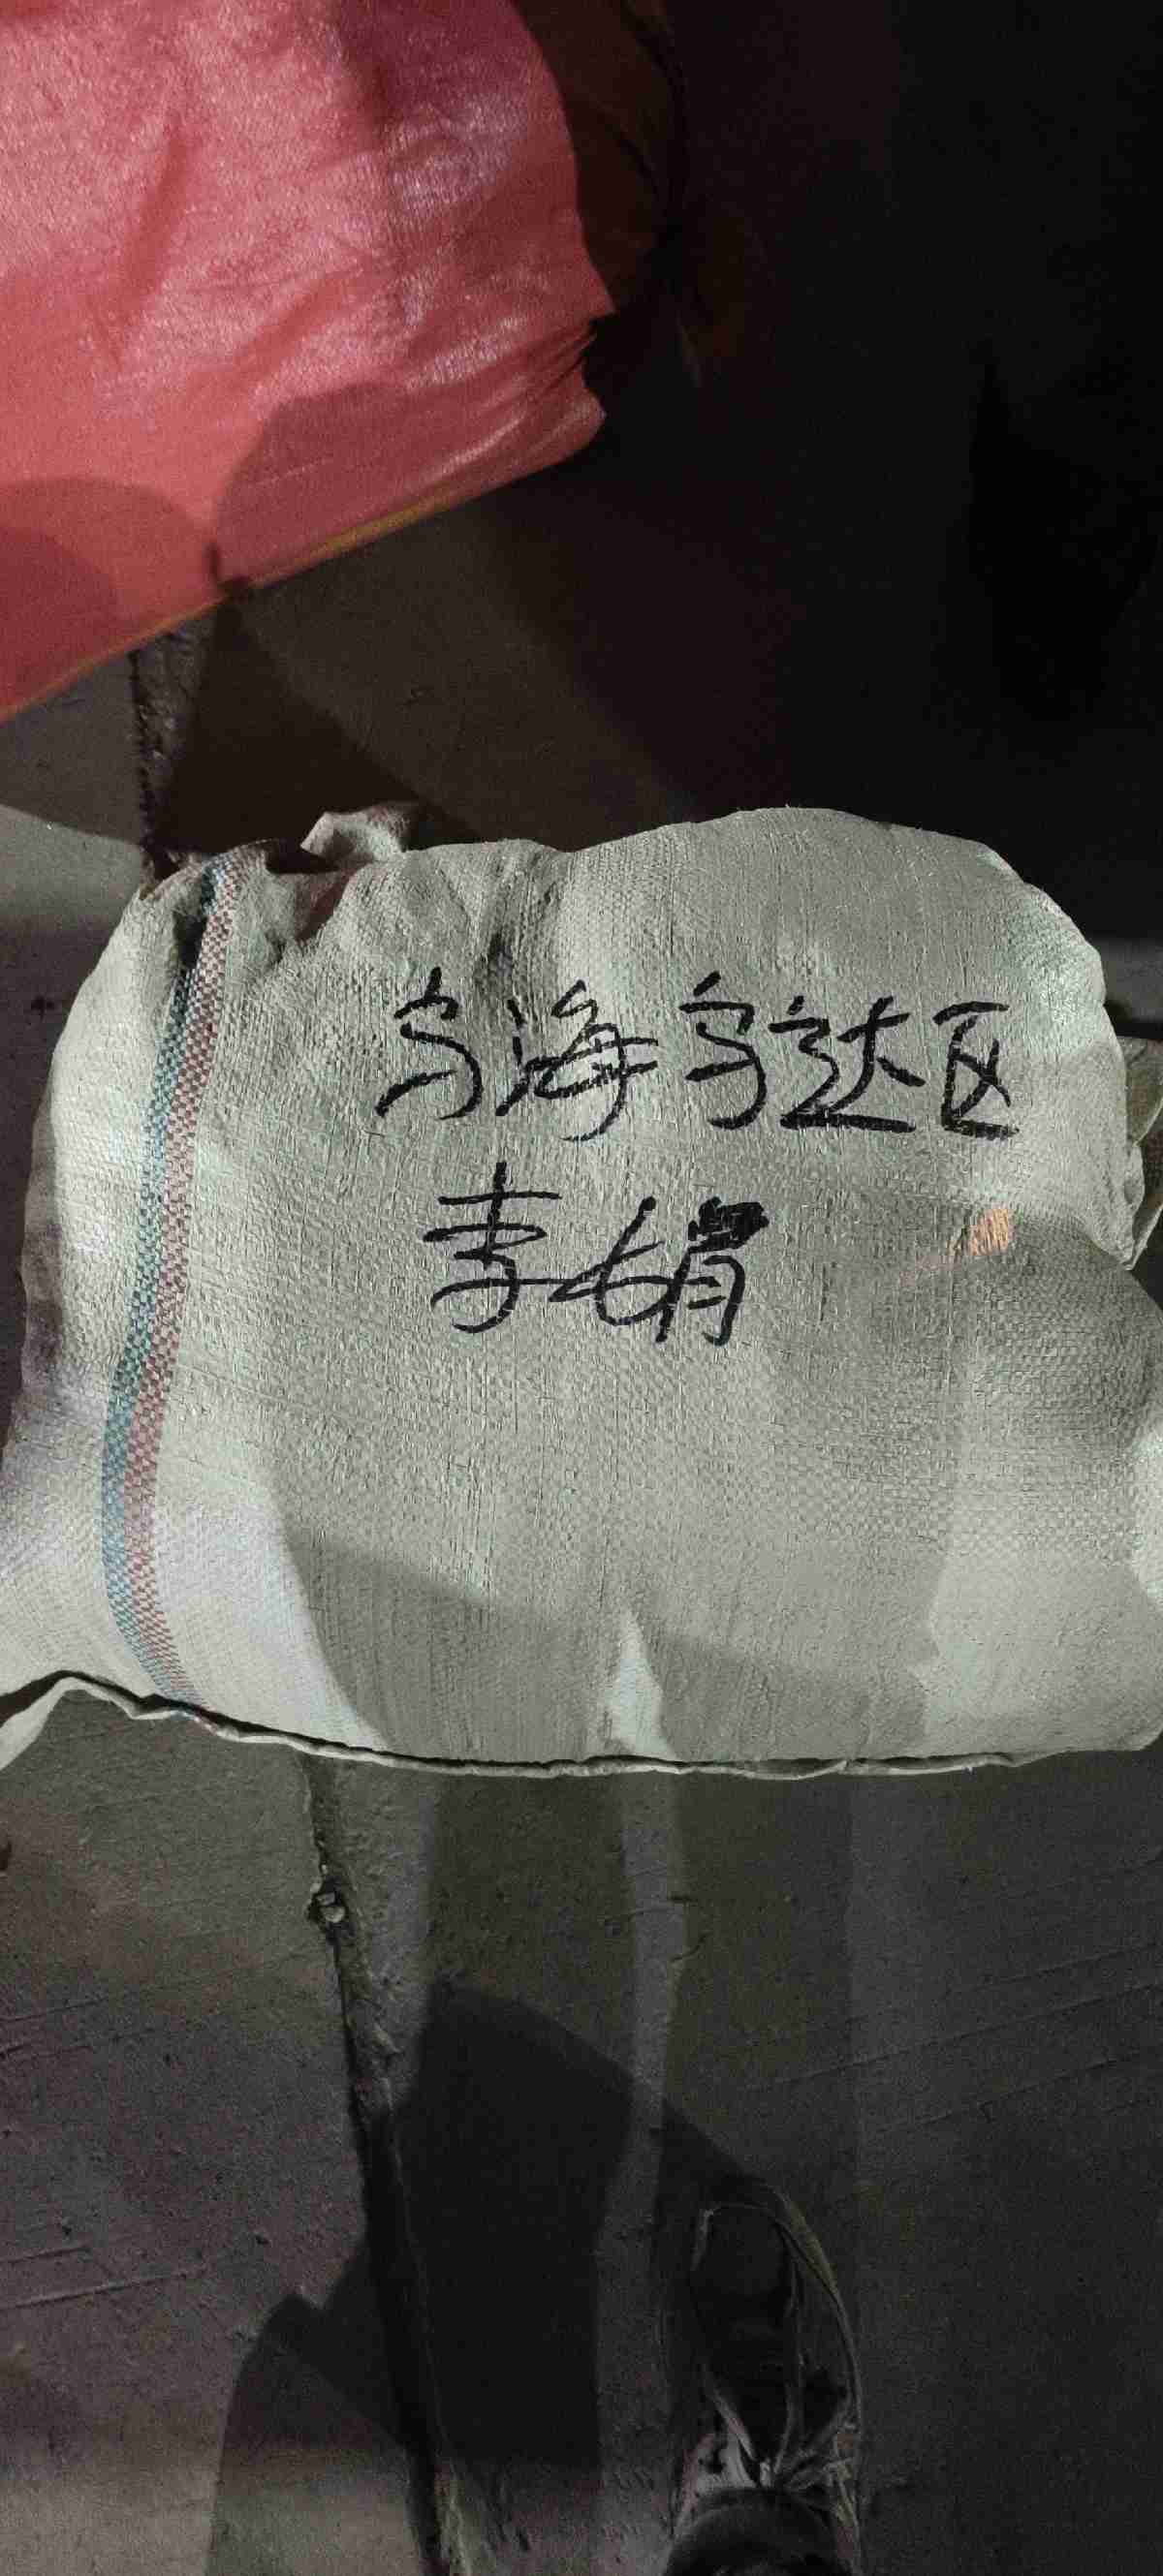 乌海乌达区
李娟